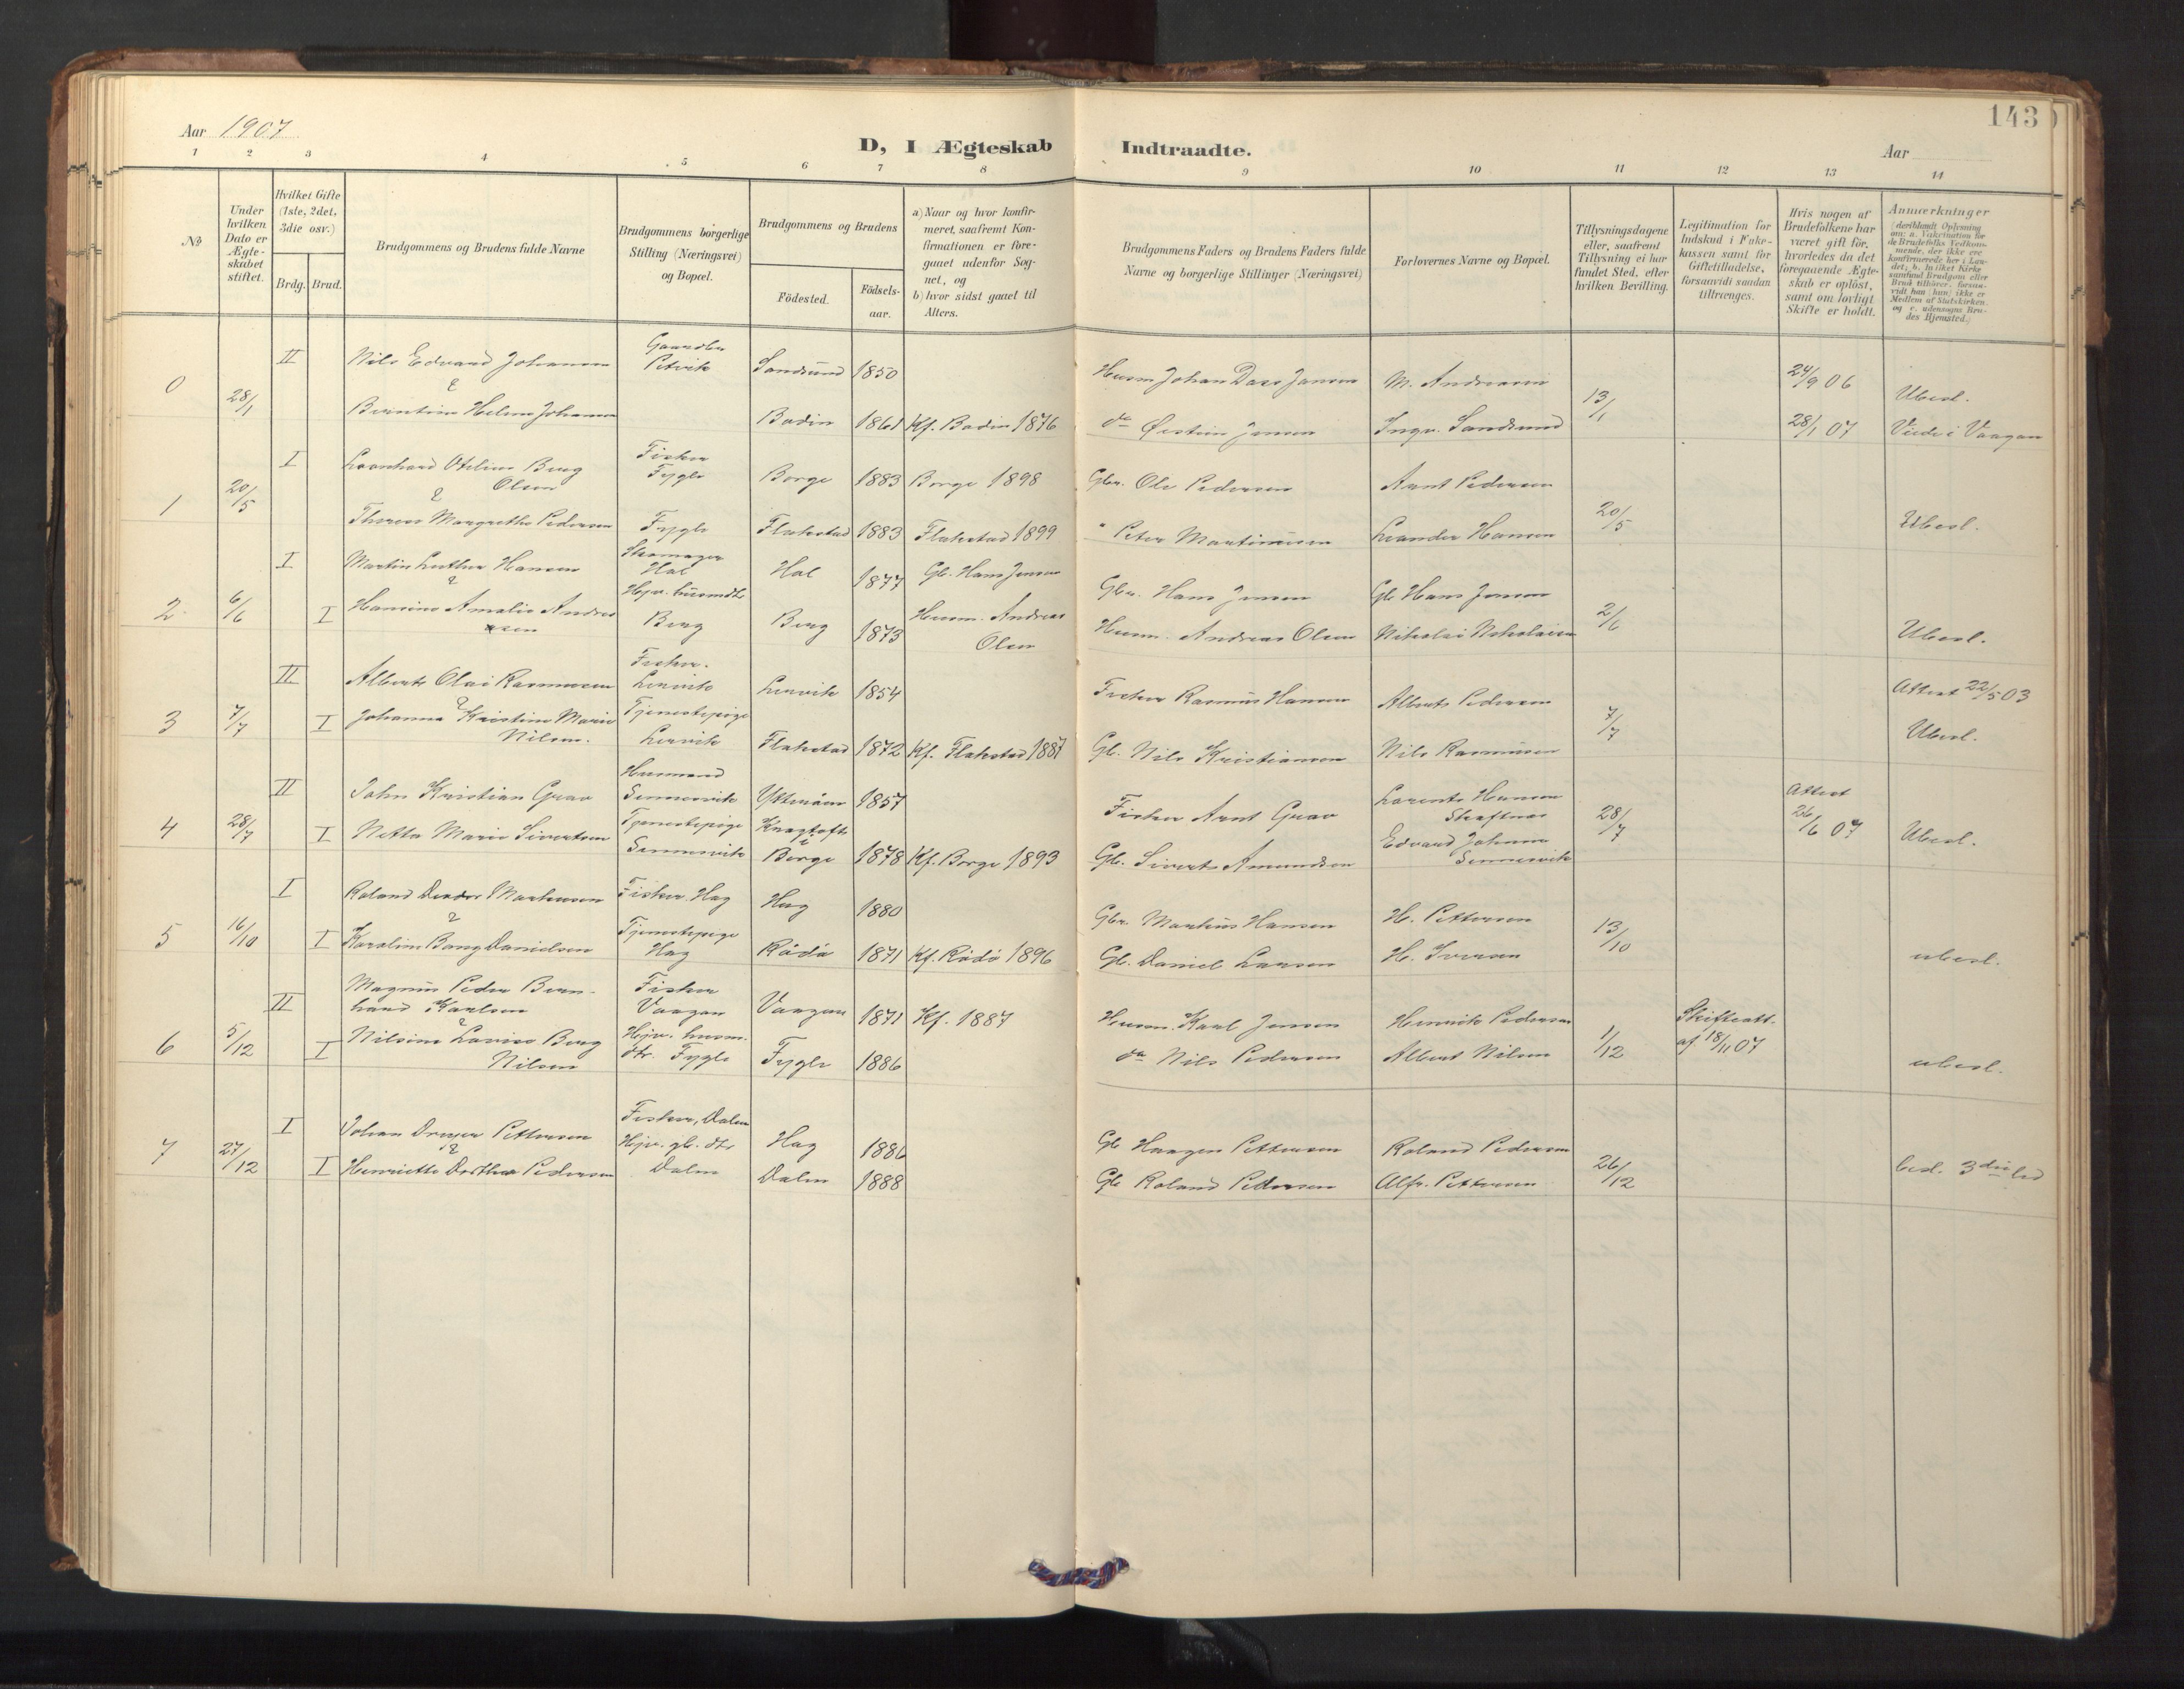 143
Aar 1907
D, I Ægteskab Indtraadte.
Aar
1 2 3 4 5 6 7 8 9 10 11 12 13 14
No
Under hvilken Dato er Ægteskabet stiftet.
Hvilket Gifte (1ste, 2det, 3die osv.)
Brdg. Brud.
Brudgommens og Brudens fulde Navne
Brudgommens borgerlige Stilling (Næringsvei) og Bopæl.
Brudgommens og Brudens
Födested.
Födselsaar.
a) Naar og hvor konfirmeret, saafremt Konfirmationen er foregaaet udenfor Sognet, og
b) hvor sidst gaaet til Alters.
Brudgommens Faders og Brudens Faders fulde Navne og borgerlige Stillinger (Næringsvei)
Forlovernes Navne og Bopæl.
Tillysningsdagene eller, saafremt Tillysning ei har fundet Sted, efter hvilken Bevilling.
Legitimation for Indskud i Enkekassen samt for Giftetilladelse, forsaavidt saadan tiltrænges.
Hvis nogen af Brudefolkene har været gift för, hvorledes da det foregaaende Ægteskab er oplöst, samt om lovligt Skifte er holdt.
Anmærkninger
(deriblandt Oplysning om: a. Vakcination for de Brudefolks Vedkommende, der ikke ere konfirmerede her i Landet; b. hvilket Kirkesamfund Brudgom eller Brud tilhörer, forsaavidt han (hun) ikke er Medlem af Statskirken, og c. udensogns Brudes Hjemsted.)
0 28/1 II Nils Edvard Johansen Petvik Sandsund 1850 Husm Johan Dass Jansen M. Andreassen 13/1 24/9 06 Ubesl.
&
Berntine Helene Johansen Bodin 1861 Kf. Bodin 1876 do Østein Jensen Ingv. Sandsund 28/1 07 Viede i Vaagan
1 20/5 I Leonhard Otelius Berg Olsen Fisker Fygle Borge 1883 Borge 1898 Gbr. Ole Pedersen Arnt Pedersen 20/5
&
Therese Margrethe Pedersen Fygle Flakstad 1883 Flakstad 1899 " Peter Martinussen Leander Hansen Ubesl.
2 6/6 I Martin Luther Hansen Skomager Hol Hol 1877 Gb. Hans Jensen Gbr. Hans Jensen Gb Hans Jensen 2/6
&
I Hansine Amalie Andreassen Hjv. husmdtr Berg Berg 1873 Husm. Andreas Olsen Husm. Andreas Olsen Nikolai Nikolaisen Ubesl.
3 7/7 II Alberts Olai Rasmussen Fisker. Lervik Lervik 1854 Fisker Rasmus Hansen Alberts Pedersen 7/7 Attest 22/5 03
&
I Johanna Kristine Marie Nilsen. Tjenestepige Lervik Flakstad 1872 Kf. Flakstad 1887 Gb. Nils Kristiansen Nils Rasmussen Ubesl.
4 28/7 II John Kristian Grav Husmand Sennesvik Ytteröen 1857 Fisker Arnt Grav Lorents Hansen Skaftnes 28/7 Attest 26/6 07
I Netta Marie Sivertsen Tjenestepige Sennesvik Borge 1878 Kf. Borge 1893 Gb. Sivert Amundsen Edvard Johansen Sennesvik Ubesl.
5 16/10 I Roland Markussen Fisker. Hag Hag 1880 Gbr. Markus Hansen H. Pettersen 13/10
&
I Karoline Bang Danielsen Tjenestepige Hag Rödö 1871 Kf. Rödö 1896 Gb. Daniel Larsen H. Iversen ubesl.
6 5/12 II Magnus Peder Bernhard Karlsen Fisker Vaagan Vaagan 1871 Kf. 1887 Husm. Karl Jensen Henrik Pedersen 1/12 Skifteatt. af 18/11 07
&
I Nilsine Lovise Berg Nilsen Hjv. husm. dtr. Fygle Fygle 1886 do Nils Pedersen Albert Nilsen ubesl.
7 27/12 I Johan Dreyer Pettersen Fisker, Dalen Hag 1886 Gb Haagen Pettersen Roland Pedersen 26/12
&
I Henriette Dorthea Pedersen Hjv. gb. dtr Dalen Dalen 1888 Gb Roland Pedersen Alfr. Pettersen besl. 3die led